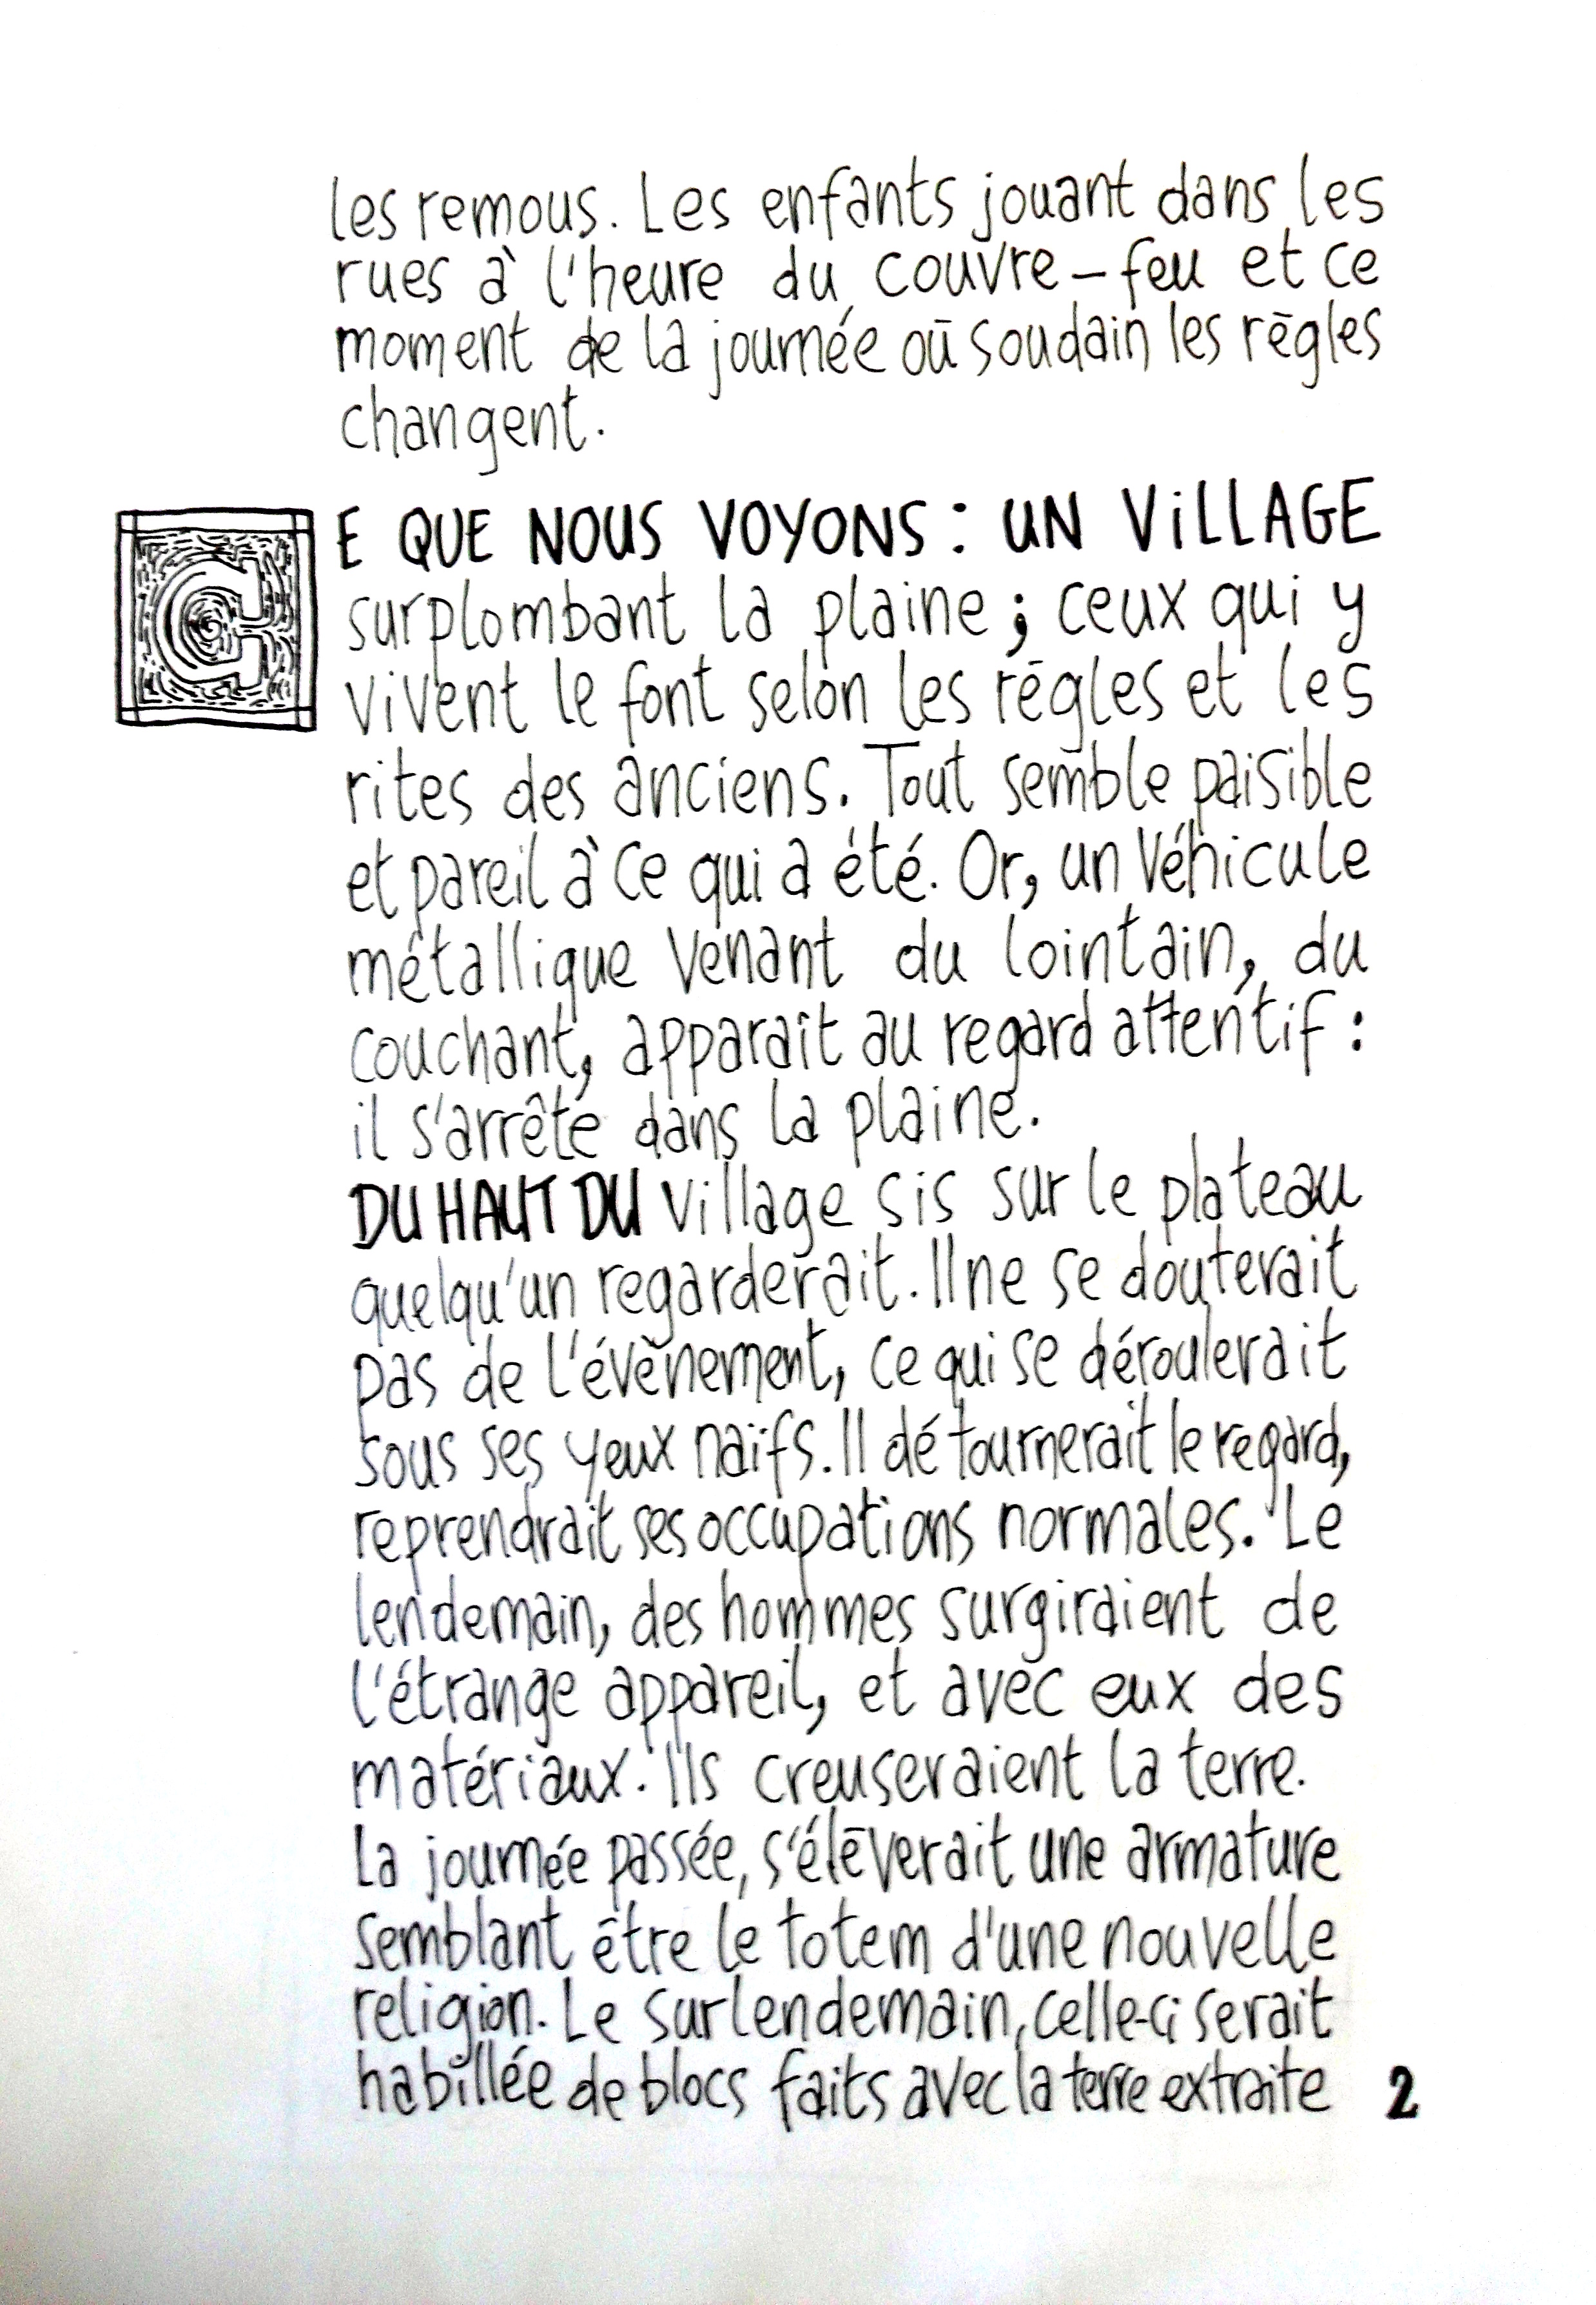 les remous. Les enfants jouant dans les
rues à l'heure du couvre-feu et ce
moment de la journée où soudain les règles
changent.
CE QUE NOUS VOYONS : UN ViLLAGE
surplombant la plaine ; ceux qui y
vivent le font selon les règles et les
rites des anciens. Tout semble paisible
et pareil à ce qui a été. Or, un véhicule
métallique venant du lointain, du
couchant, apparaît au regard attentif :
il s'arrête dans la plaine.
DU HAUT DU village sis sur le plateau
quelqu'un regarderait. Il ne se douterait
pas de l'évènement, ce qui se déroulerait
sous ses yeux naïfs. Il détournerait le regard,
reprendrait ses occupations normales. Le
lendemain, des hommes surgiraient de
l'étrange appareil, et avec eux des
matériaux. Ils creuseraient la terre.
La journée passée, s'élèverait une armature
semblant être le totem d'une nouvelle
religion. Le surlendemain, celle-ci serait
habillée de blocs faits avec la terre extraite
2